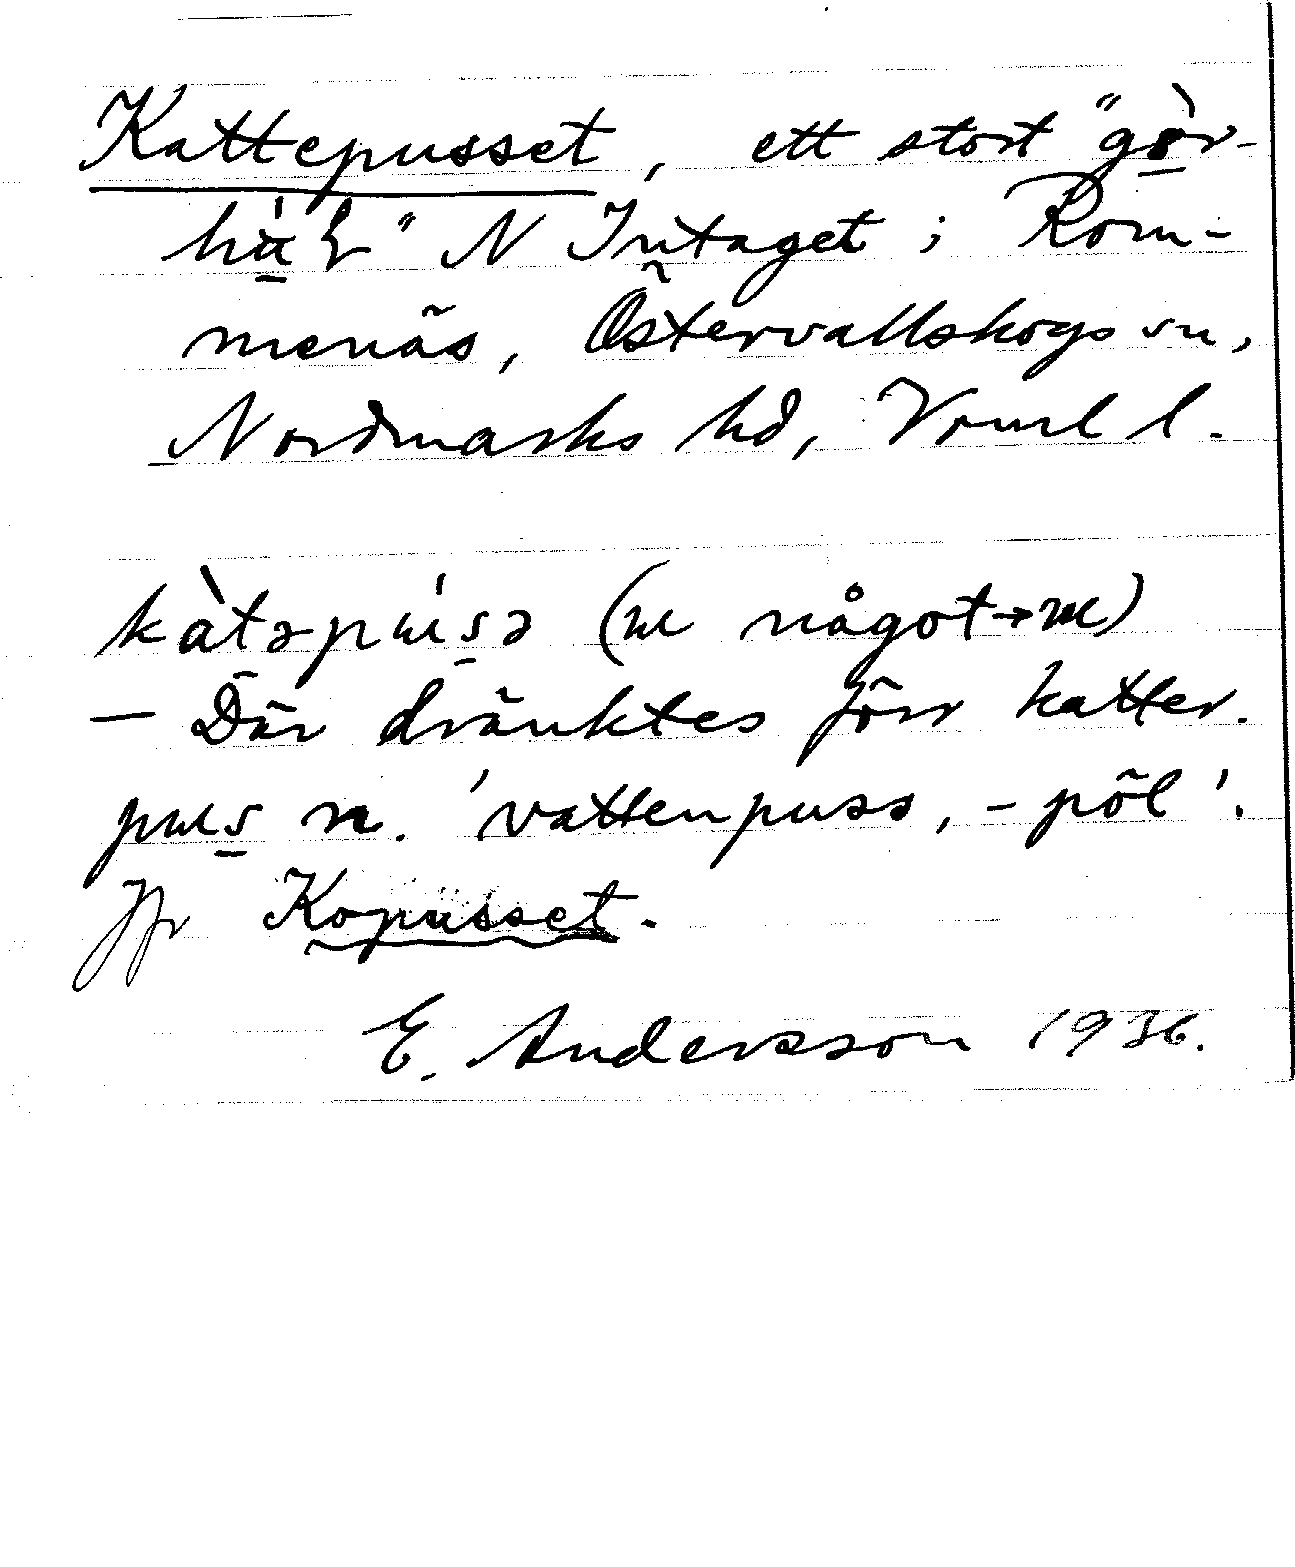 Kattepusset, ett stort "gör-
häl" N Intaget; Rom-
menäs, Östervallskogs sn,
Nordmarks hd, Värml l.
kàtəpɯ́sə (ɯ något → ɯ)
— Där dränktes förr katter.
pɯs n. 'vattenpuss, -pöl'.
Jfr Kopusset.
E. Andersson 1936.